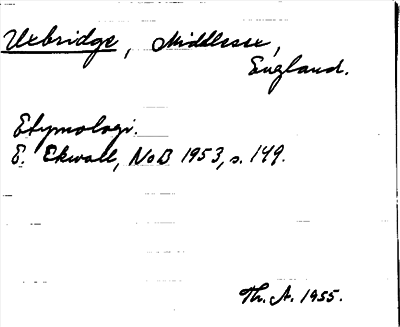 Uxbridge, Middlesex,
England.
Etymologi.
E. Ekwall, NoB 1953, s. 149.
Th. A. 1955.